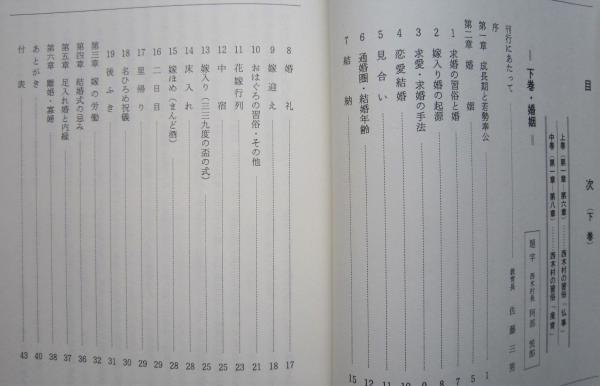 目次（下巻）
上巻（第一章―第六章）……西木村の習俗「仏事」
中巻（第一章―第八章）……西木村の習俗「産育」
題字 西木村長 阿部
＝下巻・婚姻＝
刊行にあたって……教育長 佐藤三男
序……1
第一章 成長期と若勢奉公……5
第二章 婚姻……7
1 求婚の習俗と婚
2 嫁入り婚の起源
3 求愛・求婚の手法
4 恋愛結婚……10
5 見合い……11
6 通婚圏・結婚年齢……12
7 結納……15
8 婚礼……17
9 嫁迎え……18
10 おはぐろの習俗・その他……21
11 花嫁行列……23
12 中宿……25
13 嫁入り（三三九度の盃の式）……25
14 床入れ……28
15 嫁ほめ（まんど酒）……28
16 二日目……29
17 里帰り……29
18 名ひろめ祝儀……30
19 後ふき……31
第三章 嫁の労働……32
第四章 結婚式の忌み……36
第五章 足入れ婚と内縁……37
第六章 離婚・寡婦……38
あとがき……40
付表……43